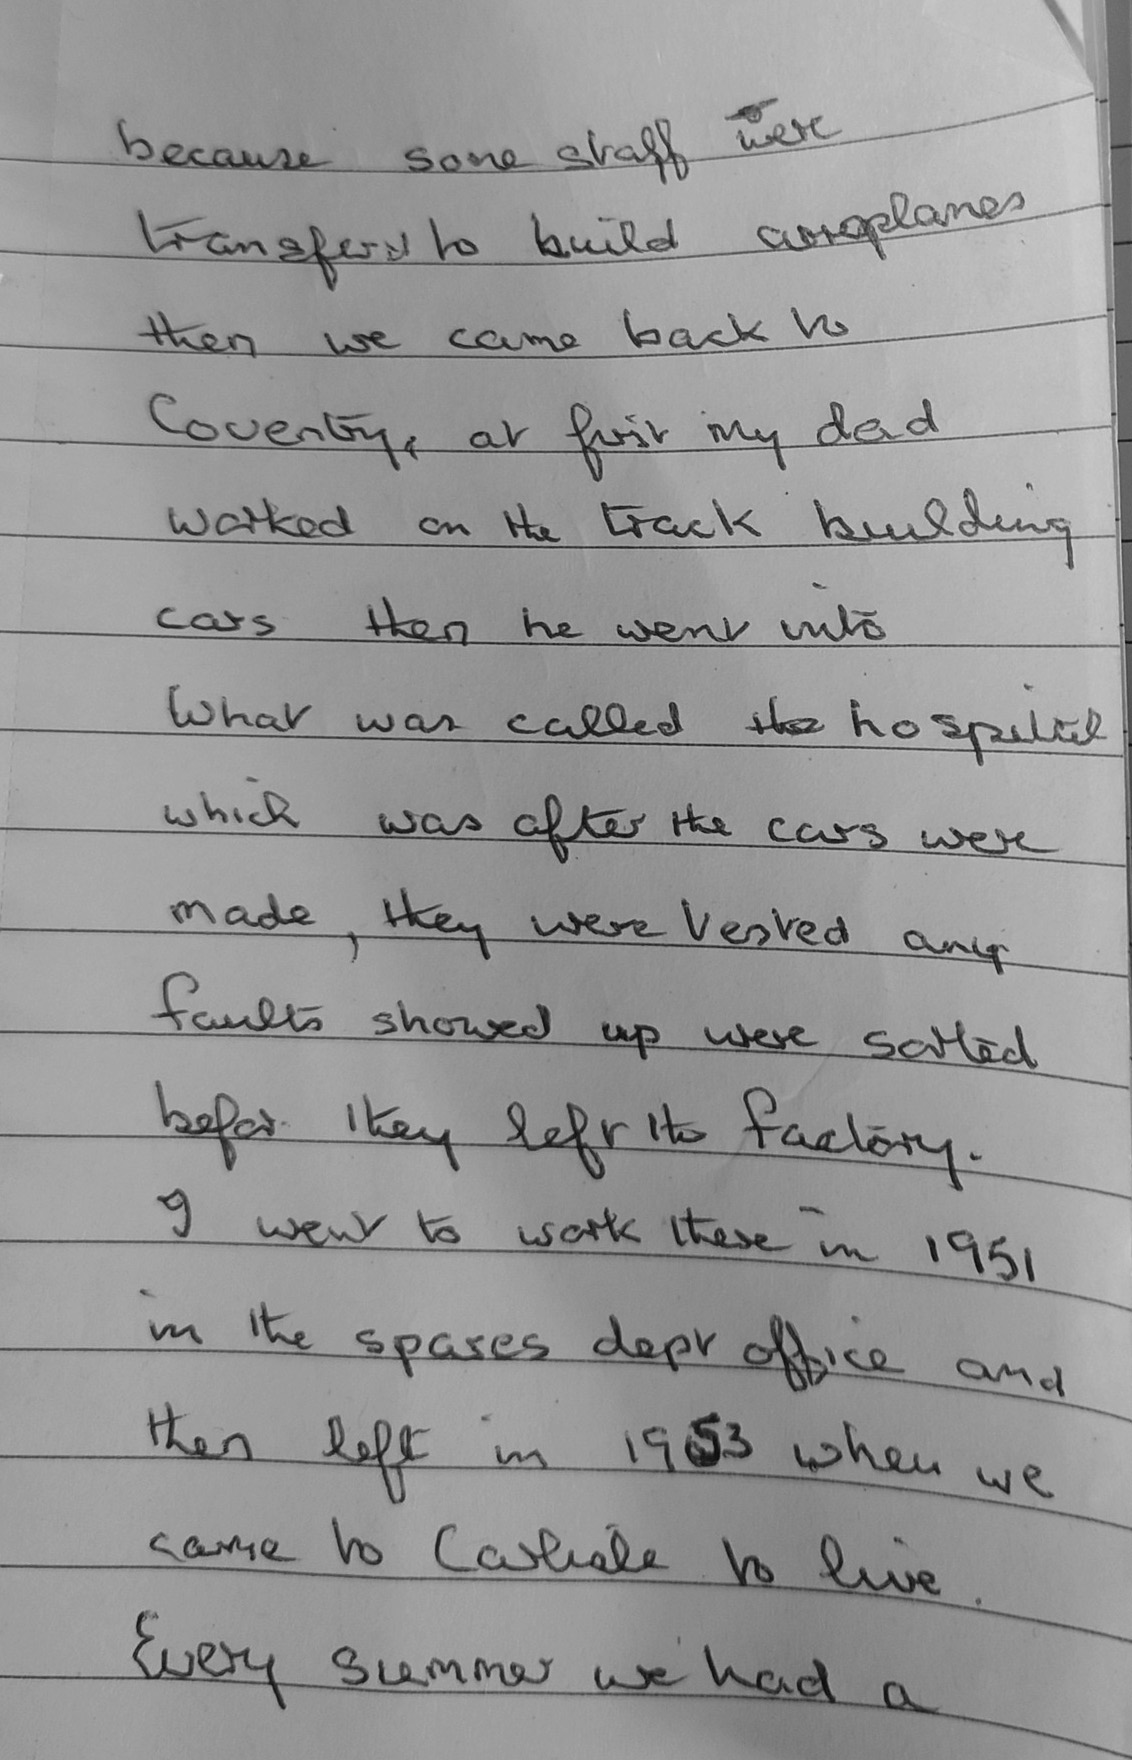 because some staff were
transferd to build aeroplanes
then we came back to
Coventry, at first my dad
worked on the track building
cars then he went into
what was called the hospital
which was after the cars were
made, they were tested any
faults showed up were sorted
befor they left the factory.
I went to work there in 1951
in the spares dept office and
then left in 1953 when we
came to Carlisle to live.
Every summer we had a